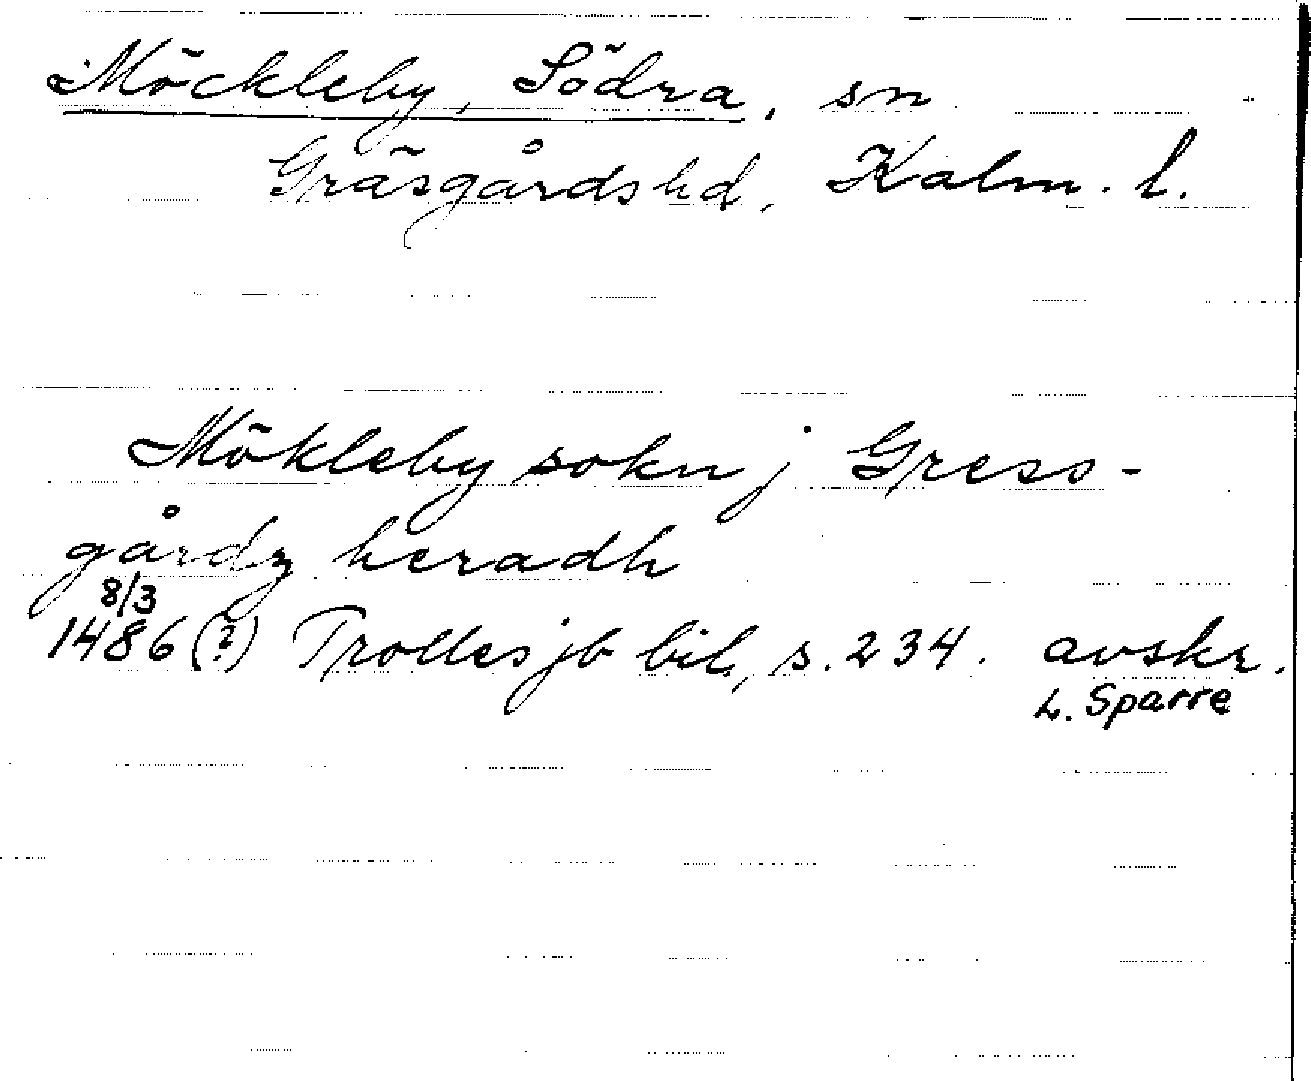 Möckleby, Södra, sn
Gräsgårds hd, Kalm. l.
Mökleby sokn j Gress-
gårdz heradh
8/3
1486 (?) Trolles jb bil, s. 234. avskr.
L. Sparre